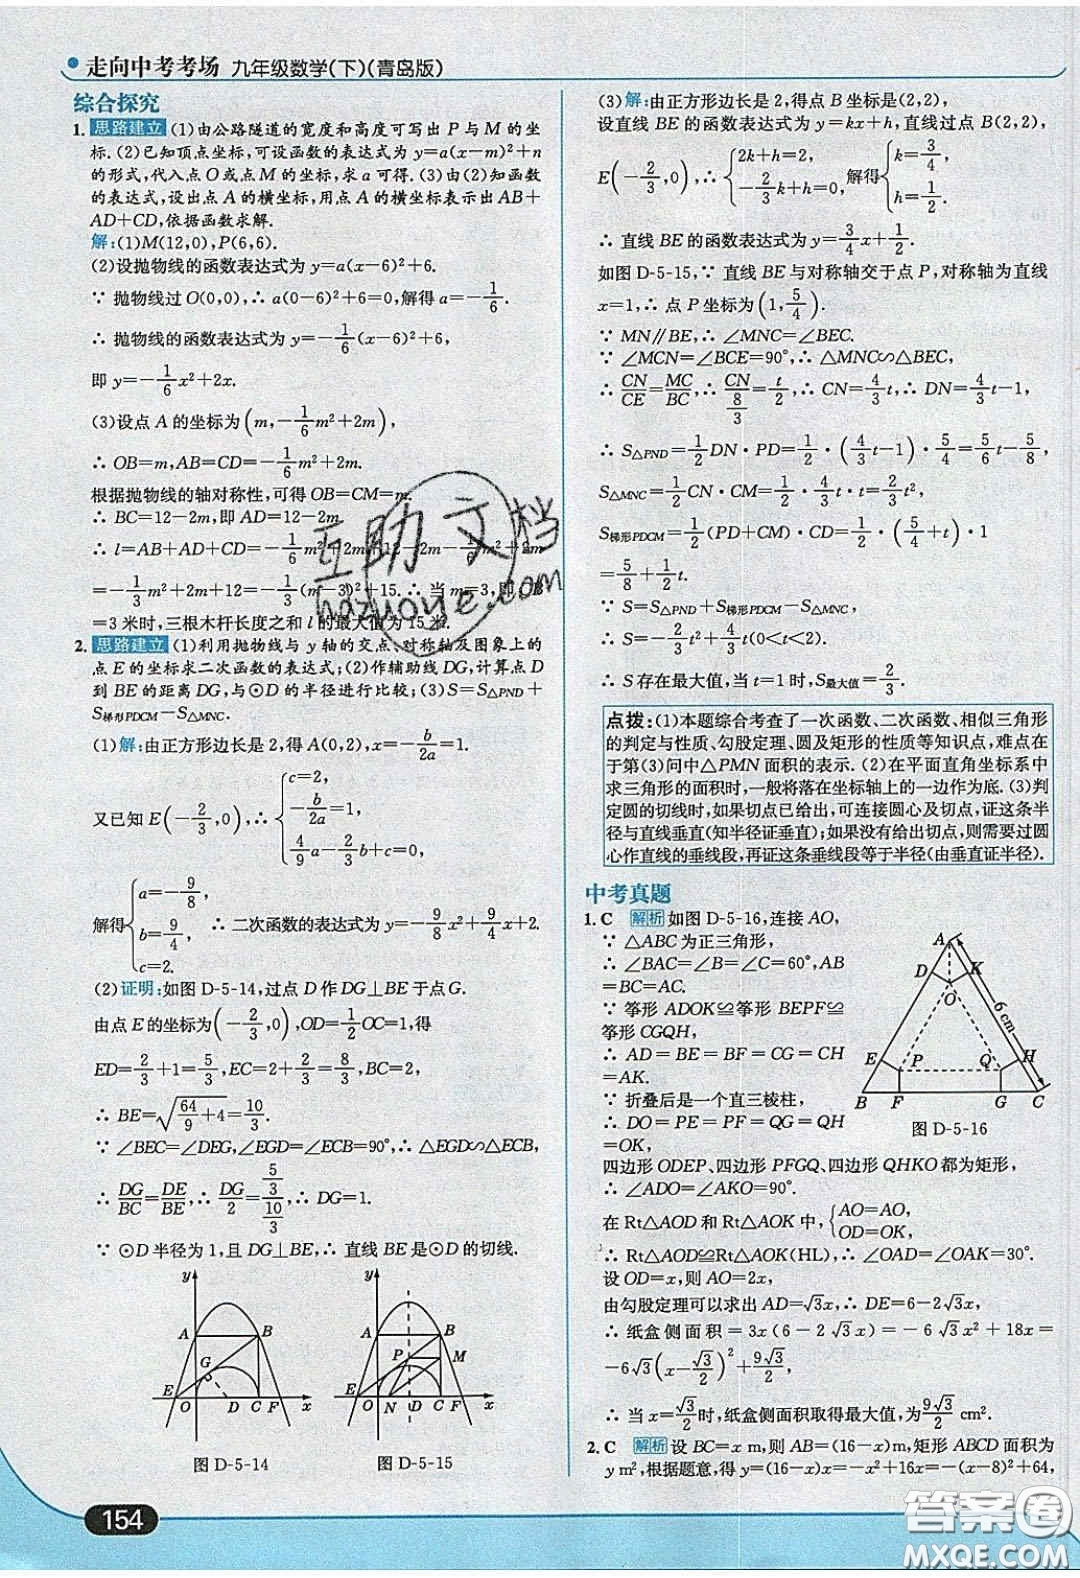 走向中考考场 九年级数学(下)(青岛版)
综合探究
1. 思路建立 (1)由公路隧道的宽度和高度可写出 P 与 M 的坐
标.(2)已知顶点坐标,可设函数的表达式为 y=a(x-m)²+n
的形式,代入点 O 或点 M 的坐标,求 a 可得.(3)由(2)知函数
的表达式,设出点 A 的横坐标,用点 A 的横坐标表示出 AB+
AD+CD,依据函数求解.
解:(1)M(12,0),P(6,6).
(2)设抛物线的函数表达式为 y=a(x-6)²+6.
∵ 抛物线过 O(0,0),∴ a(0-6)²+6=0,解得 a=-1/6.
∴ 抛物线的函数表达式为 y=-1/6(x-6)²+6,
即 y=-1/6x²+2x.
(3)设点 A 的坐标为(m,-1/6m²+2m),
∴ OB=m,AB=CD=-1/6m²+2m.
根据抛物线的轴对称性,可得 OB=CM=m.
∴ BC=12-2m,即 AD=12-2m.
∴ l=AB+AD+CD=-1/6m²+2m+12-2m-1/6m²+2m
=-1/3m²+2m+12=-1/3(m-3)²+15.∴ 当 m=3,即 OB
=3 米时,三根木杆长度之和 l 的最大值为 15 米.
2. 思路建立 (1)利用抛物线与 y 轴的交点、对称轴及图象上的
点 E 的坐标求二次函数的表达式;(2)作辅助线 DG,计算点 D
到 BE 的距离 DG,与⊙D 的半径进行比较;(3)S=S△PND+
S梯形PDCM-S△MNC.
(1)解:由正方形边长是 2,得 A(0,2),x=-b/2a=1.
又已知 E(-2/3,0),∴ {c=2, -b/2a=1, 4/9a-2/3b+c=0,
解得{a=-9/8, b=9/4, c=2. ∴ 二次函数的表达式为 y=-9/8x²+9/4x+2.
(2)证明:如图 D-5-14,过点 D 作 DG⊥BE 于点 G.
由点 E 的坐标为(-2/3,0),OD=1/2OC=1,得
ED=2/3+1=5/3,EC=2+2/3=8/3,BC=2.
∴ BE=√(64/9+4)=10/3.
∵ ∠BEC=∠DEG,∠EGD=∠ECB=90°,∴ △EGD∽△ECB,
∴ DG/BC=DE/BE,∴ DG/2=(5/3)/(10/3),∴ DG=1.
∵ ⊙D 半径为 1,且 DG⊥BE,∴ 直线 BE 是⊙D 的切线.
y A B G E O D C F x
图 D-5-14
y A B P M E O N D C F x
图 D-5-15
154
(3)解:由正方形边长是 2,得点 B 坐标是(2,2),
设直线 BE 的函数表达式为 y=kx+h,直线过点 B(2,2),
E(-2/3,0),∴ {2k+h=2, -2/3k+h=0, 解得{k=3/4, h=1/2.
∴ 直线 BE 的函数表达式为 y=3/4x+1/2.
如图 D-5-15,∵ 直线 BE 与对称轴交于点 P,对称轴为直线
x=1,∴ 点 P 坐标为(1,5/4).
∵ MN∥BE,∴ ∠MNC=∠BEC.
∵ ∠MCN=∠BCE=90°,∴ △MNC∽△BEC,
∴ CN/CE=MC/BC,∴ CN/(8/3)=t/2,∴ CN=4/3t,∴ DN=4/3t-1,
∴ S△PND=1/2DN·PD=1/2·(4/3t-1)·5/4=5/6t-5/8,
S△MNC=1/2CN·CM=1/2·4/3t·t=2/3t²,
S梯形PDCM=1/2(PD+CM)·CD=1/2·(5/4+t)·1
=5/8+1/2t.
∵ S=S△PND+S梯形PDCM-S△MNC,
∴ S=-2/3t²+4/3t(0<t<2).
∴ S 存在最大值,当 t=1 时,S最大值=2/3.
点拨:(1)本题综合考查了一次函数、二次函数、相似三角形
的判定与性质、勾股定理、圆及矩形的性质等知识点,难点在
于第(3)问中△PMN 面积的表示.(2)在平面直角坐标系中
求三角形的面积时,一般将落在坐标轴上的一边作为底.(3)判
定圆的切线时,如果切点已给出,可连接圆心及切点,证这条半
径与直线垂直(知半径证垂直);如果没有给出切点,则需要过圆
心作直线的垂线段,再证这条垂线段等于半径(由垂直证半径).
中考真题
1. C 解析 如图 D-5-16,连接 AO,
∵ △ABC 为正三角形,
∴ ∠BAC=∠B=∠C=60°,AB
=BC=AC.
∵ 筝形 ADOK≌筝形 BEPF≌
筝形 CGQH,
∴ AD=BE=BF=CG=CH
=AK.
∵ 折叠后是一个直三棱柱,
∴ DO=PE=PF=QG=QH
=OK,
四边形 ODEP、四边形 PFGQ、四边形 QHKO 都为矩形,
∴ ∠ADO=∠AKO=90°.
在 Rt△AOD 和 Rt△AOK 中,{AO=AO, OD=OK,
∴ Rt△AOD≌Rt△AOK(HL),∴ ∠OAD=∠OAK=30°.
设 OD=x,则 AO=2x,
由勾股定理可以求出 AD=√3x,∴ DE=6-2√3x,
∴ 纸盒侧面积=3x(6-2√3x)=-6√3x²+18x=
-6√3(x-√3/2)²+9√3/2,
∴ 当 x=√3/2 时,纸盒侧面积取得最大值,为 9√3/2 cm².
A D K O 6 cm E P Q H B F G C
图 D-5-16
2. C 解析 设 BC=x m,则 AB=(16-x)m,矩形 ABCD 面积为
y m²,根据题意,得 y=(16-x)x=-x²+16x=-(x-8)²+64,
互助文档
hazuoye.com
答案圈
MXQE.COM